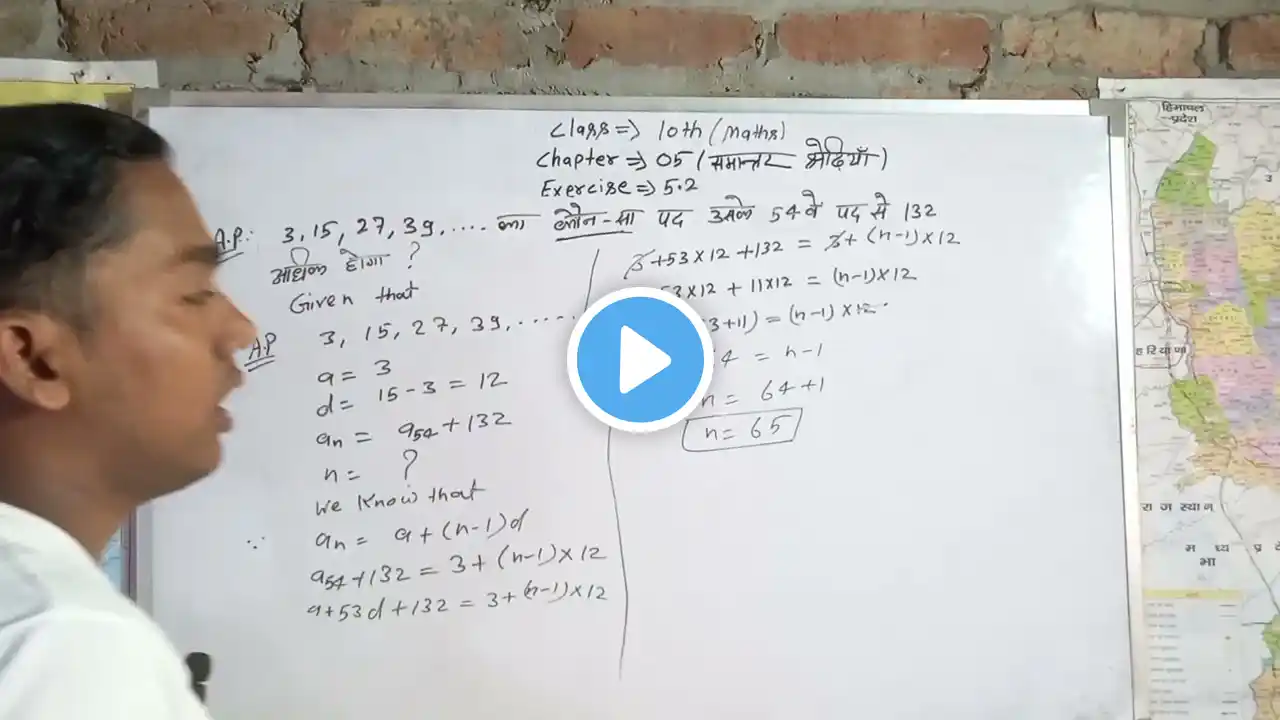 Class => 10th (Maths)
Chapter => 05 (समान्तर श्रेढ़ियाँ)
Exercise => 5.2
A.P: 3, 15, 27, 39, .... का कौन-सा पद उसके 54वें पद से 132
अधिक होगा ?
Given that
A.P 3, 15, 27, 39, ......
a = 3
d = 15 - 3 = 12
an = a54 + 132
n = ?
We Know that
∵ an = a + (n-1)d
a54 + 132 = 3 + (n-1) × 12
a + 53d + 132 = 3 + (n-1) × 12
3 + 53 × 12 + 132 = 3 + (n-1) × 12
53 × 12 + 11 × 12 = (n-1) × 12
3 + 11) = (n-1) × 12
4 = n-1
n = 64 + 1
n = 65
हिमाचल
प्रदेश
हरियाणा
राजस्थान
मध्य प्र
भा